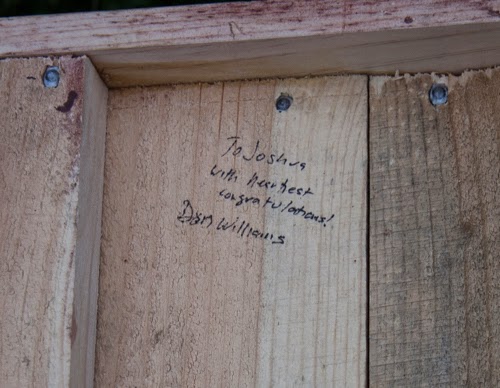 To Joshua
with heartfest
congratulations!
Dan Williams